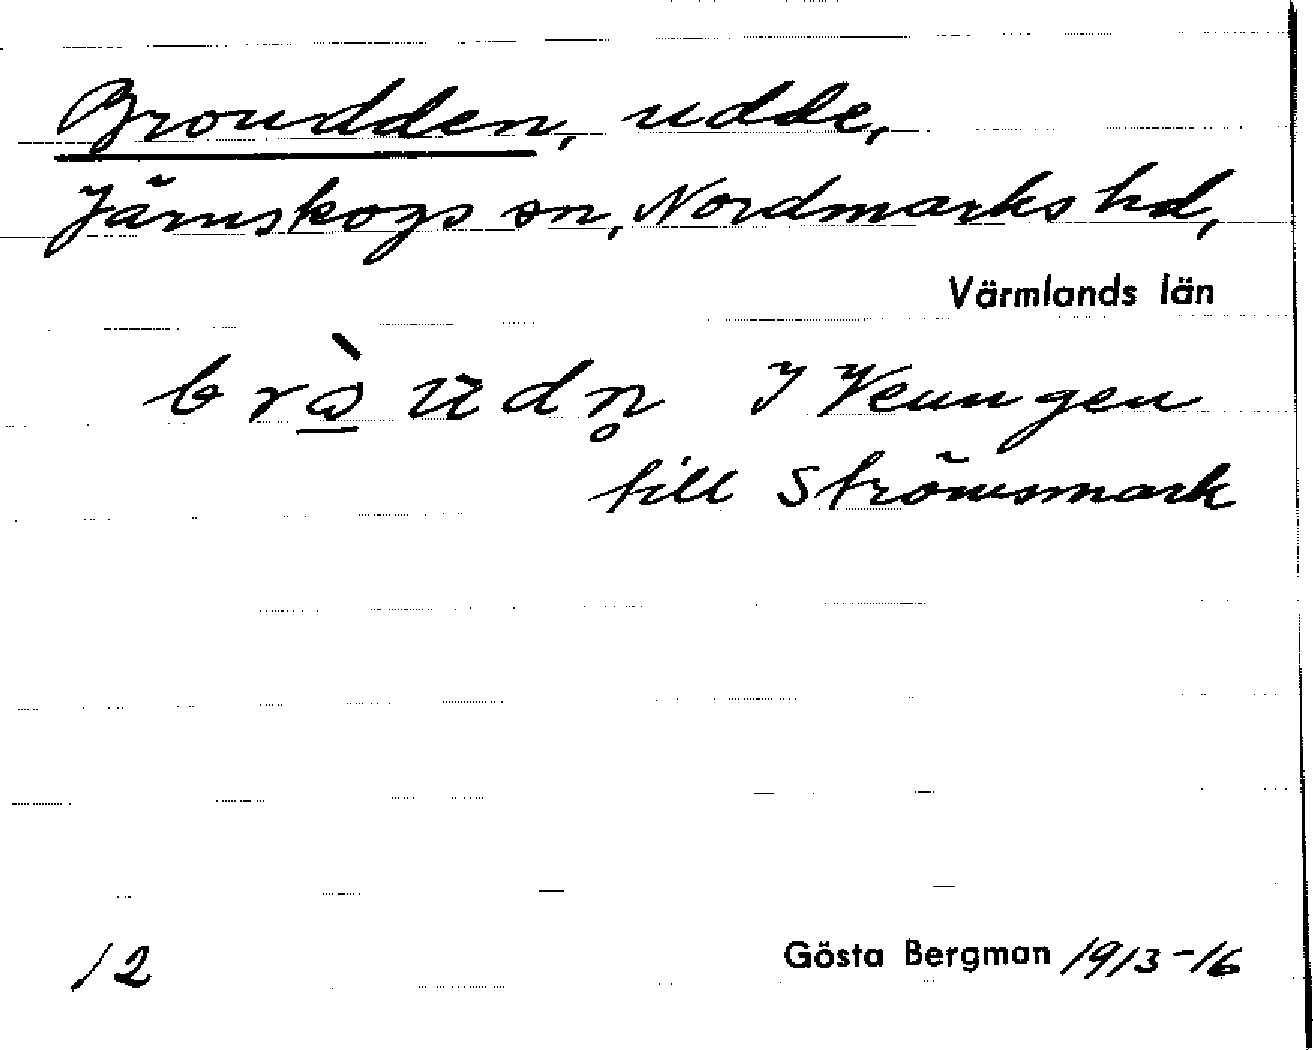 Broudden, udde,
Järnskogs sn, Nordmarks hd,
Värmlands län
I Venngen
till Strömsmark
12
Gösta Bergman 1913-16